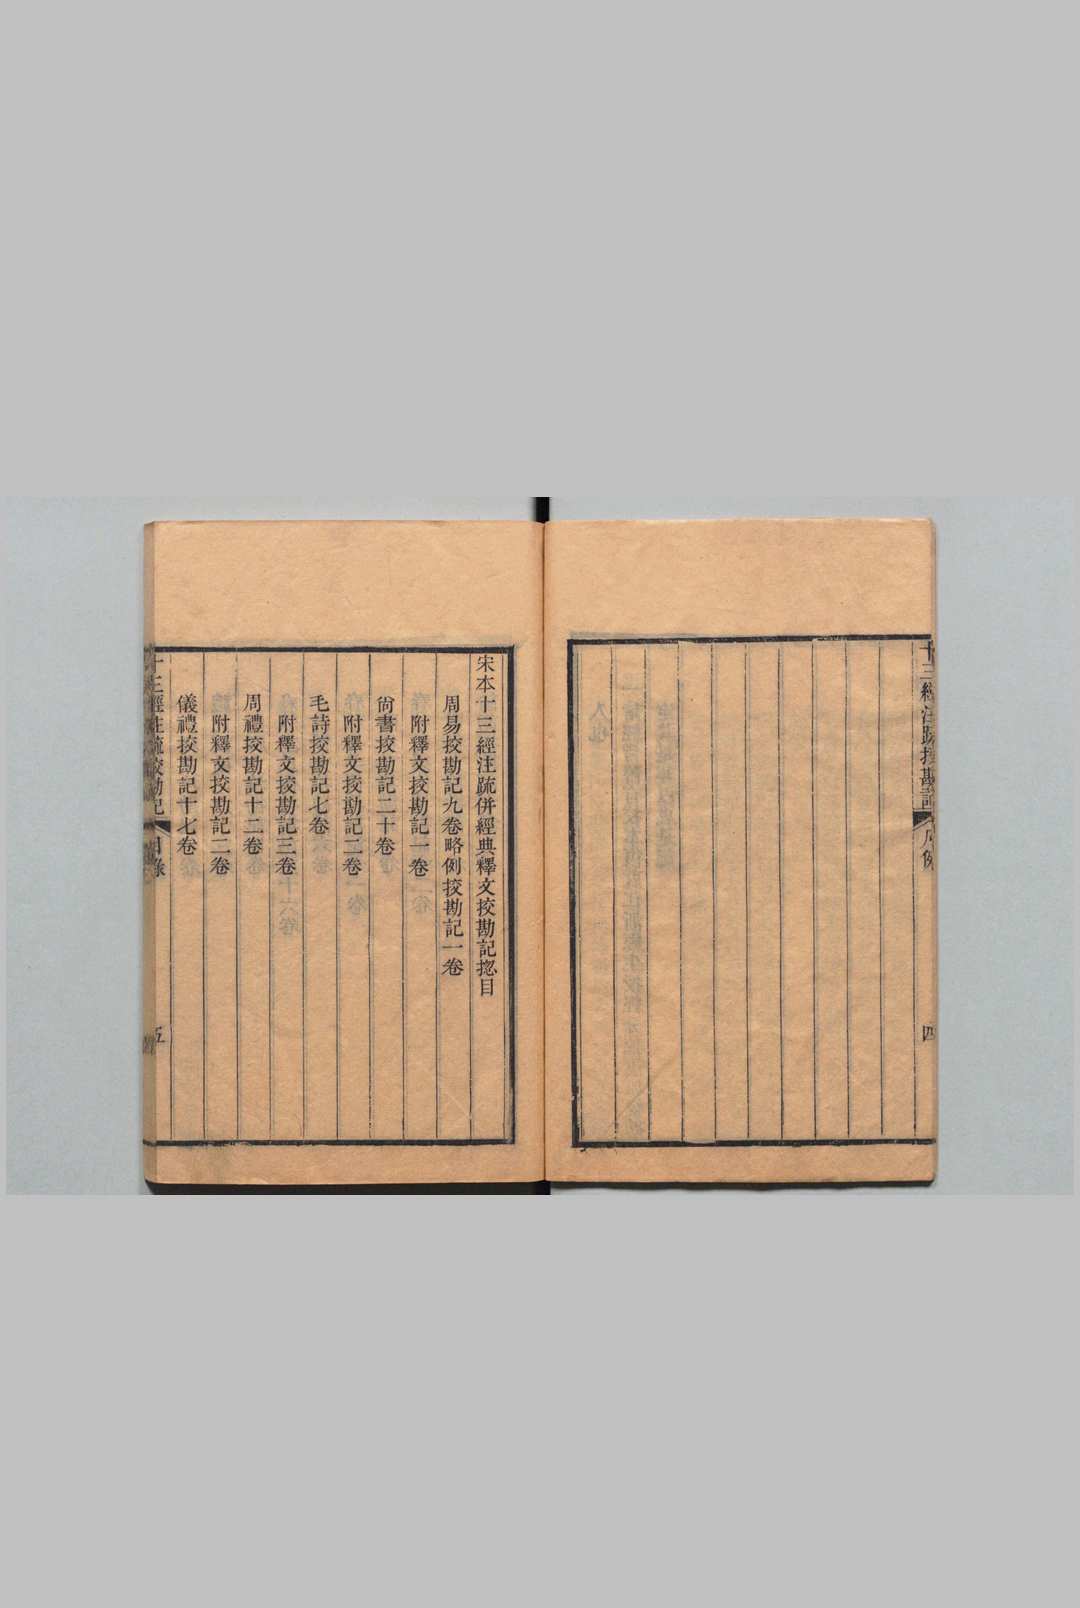 十三經注疏挍勘記
凡例
四
宋本十三經注疏併經典釋文挍勘記揔目
周易挍勘記九卷略例挍勘記一卷
附釋文挍勘記一卷
尙書挍勘記二十卷
附釋文挍勘記二卷
毛詩挍勘記七卷
附釋文挍勘記三卷
周禮挍勘記十二卷
附釋文挍勘記二卷
儀禮挍勘記十七卷
十三經注疏挍勘記
目錄
五